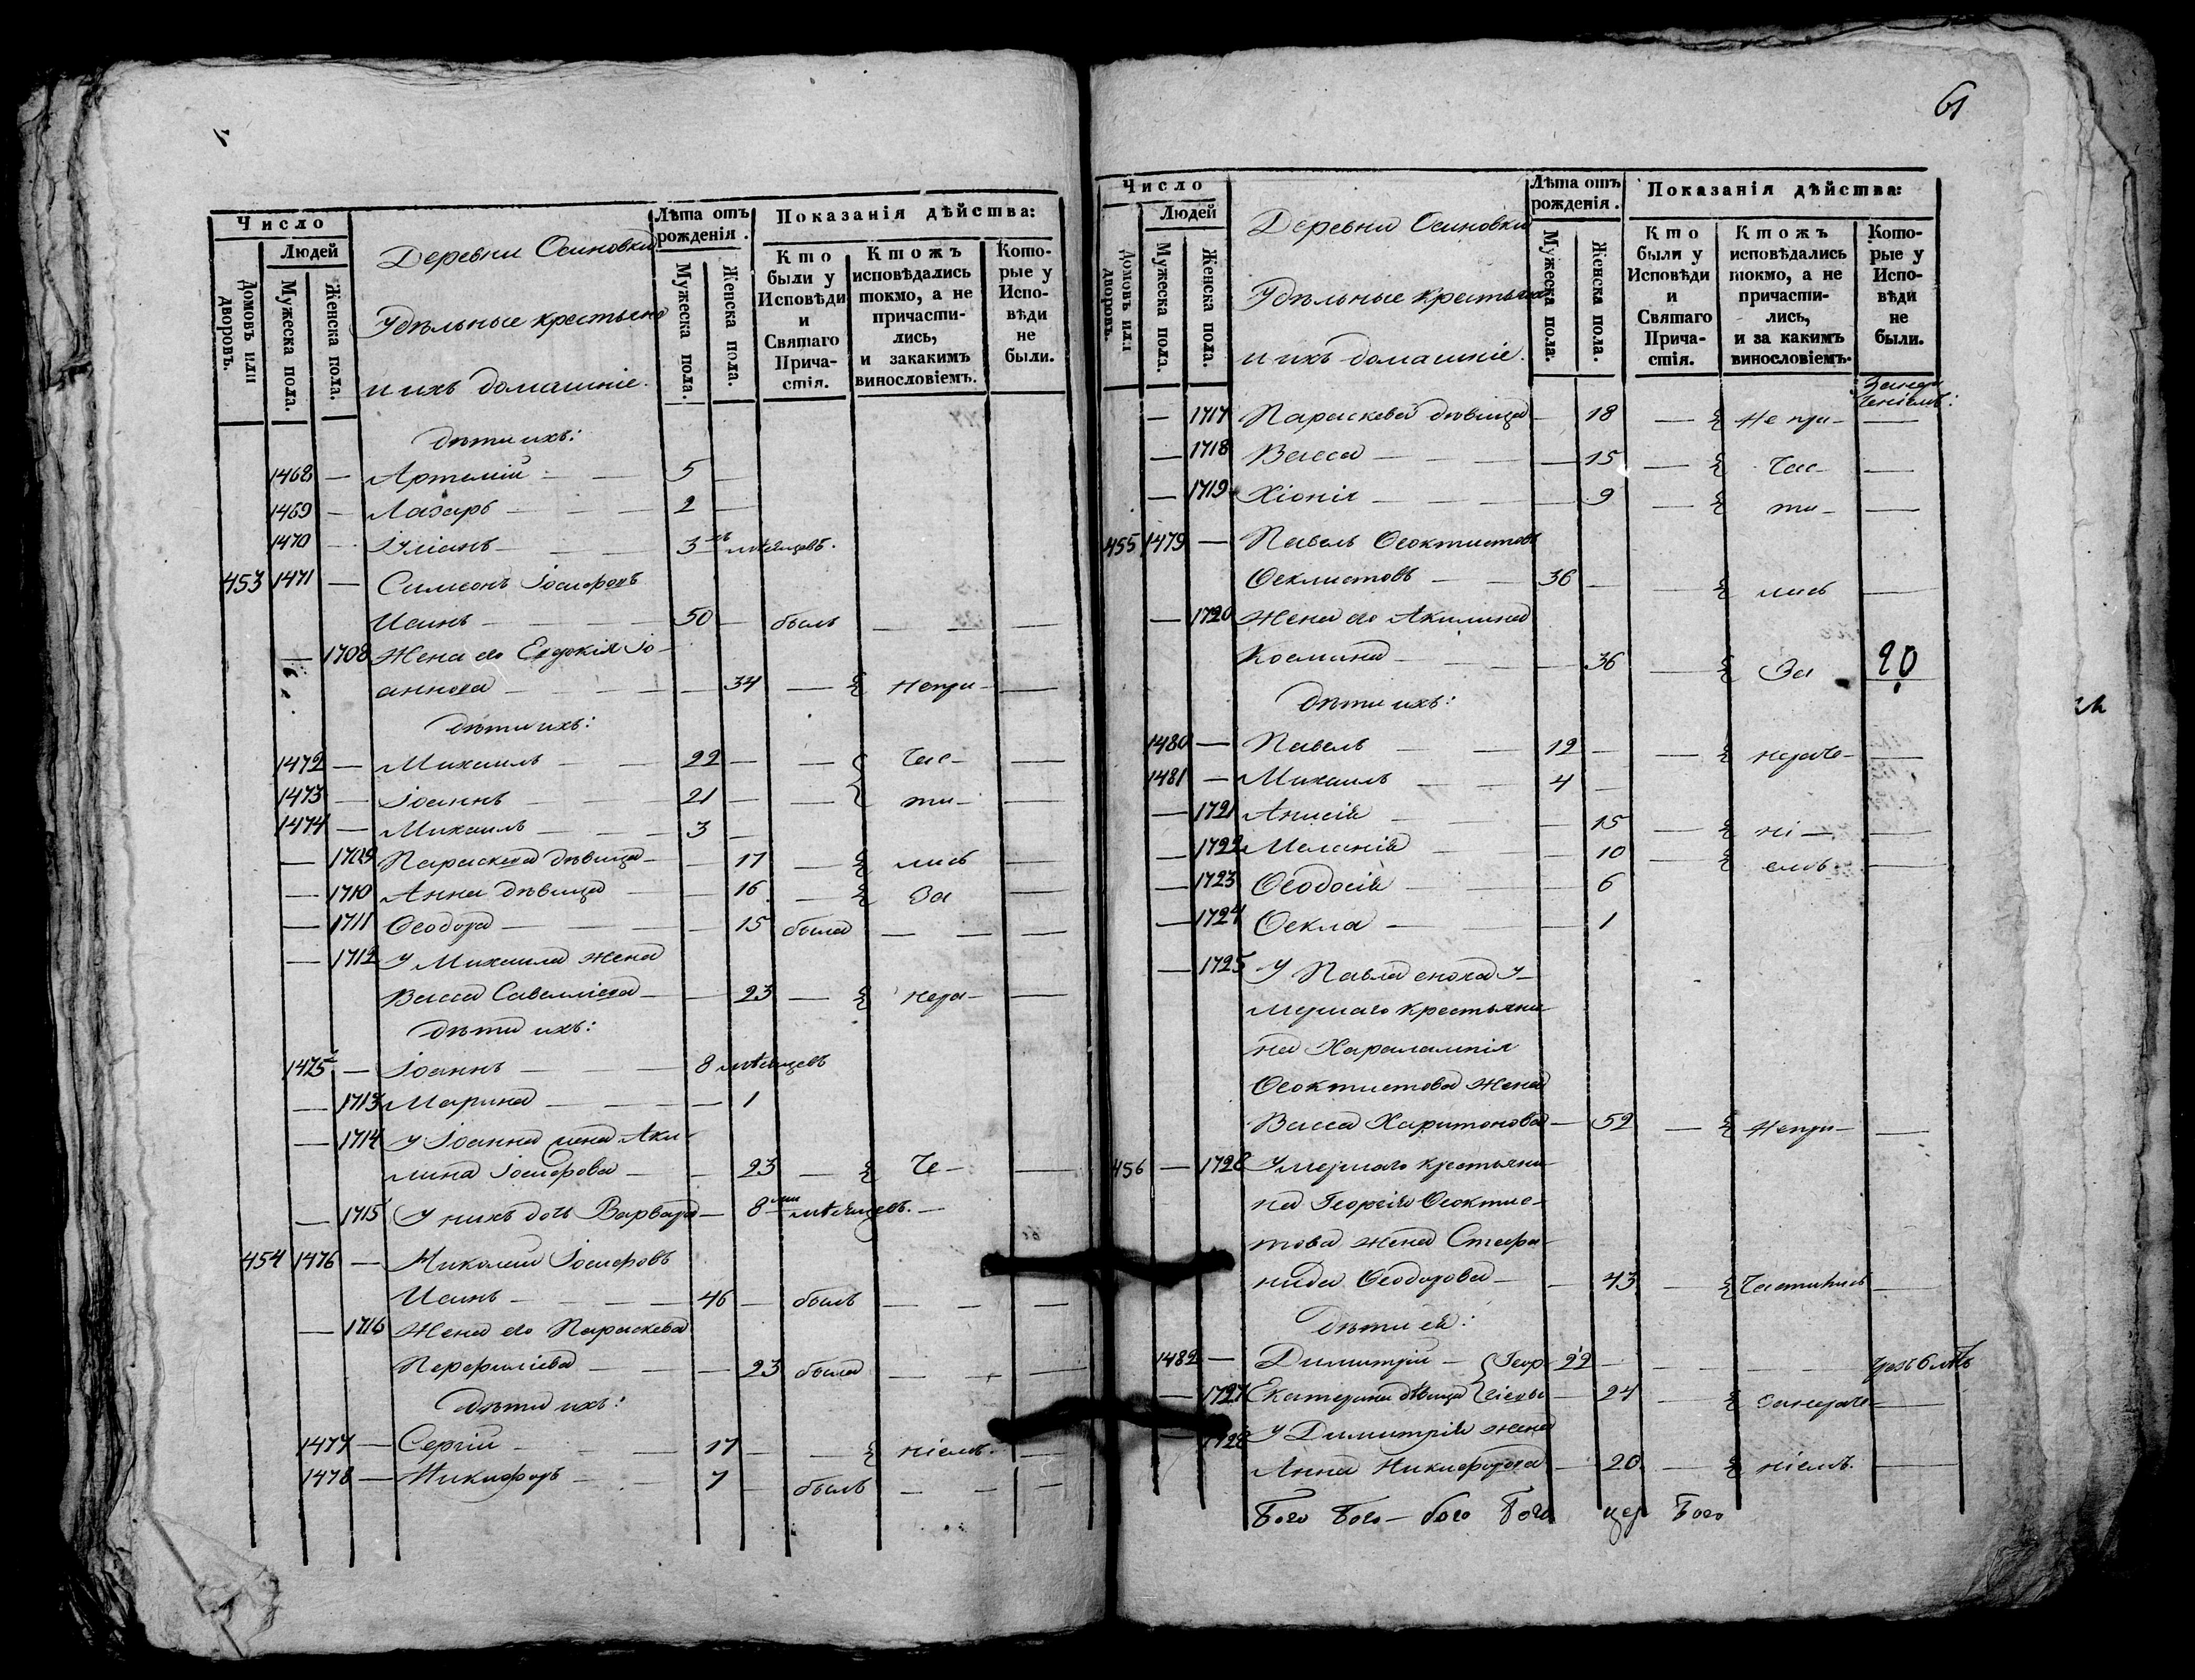 Число
Людей
Домовъ или дворовъ.
Мужеска пола.
Женска пола.
Деревни Осиновки
Удѣльные крестьяне
и ихъ домашніе.
Лѣта отъ рожденія.
Мужеска пола.
Женска пола.
Показанія дѣйства:
Кто были у Исповѣди и Святаго Причастія.
Ктожъ исповѣдались токмо, а не причастились, и закакимъ винословіемъ.
Которые у Исповѣди не были.
дѣти ихъ:
1468 — Артемій — 5 —
1469 — Лазарь — 2 —
1470 — Іуліанъ — 3 мѣсяцовъ.
453 1471 — Симеонъ Іосифовъ
Исинъ — 50 — былъ — — —
— 1708 Жена его Евдокія Іо-
аннова — — 34 — Непри- —
дѣти ихъ:
1472 — Михаилъ — 22 — — час- —
1473 — Іоаннъ — 21 — — ти- —
1474 — Михаилъ — 3 —
— 1709 Параскева дѣвица — — 17 — лись —
— 1710 Анна дѣвица — — 16 — За —
— 1711 Ѳеодора — — 15 была — — —
— 1712 У Михаила жена
Васса Савелліева — — 23 — нера- —
дѣти ихъ:
1475 — Іоаннъ — 8 мѣсяцовъ
— 1713 Марина — — 1
— 1714 У Іоанна жена Аки-
лина Іосифова — — 23 — че- —
— 1715 У нихъ дочь Варвара — 8ми мѣсяцовъ. —
454 1476 — Николай Іосифовъ
Исинъ — 46 — былъ — — —
— 1716 Жена его Параскева
Перфиліева — — 23 была — — —
дѣти ихъ:
1477 — Сергій — 17 — — ніемъ. —
1478 — Никифоръ — 7 — былъ — — —
61
Число
Людей
Домовъ или дворовъ.
Мужеска пола.
Женска пола.
Деревни Осиновки
Удѣльные крестьяне
и ихъ домашніе.
Лѣта отъ рожденія.
Мужеска пола.
Женска пола.
Показанія дѣйства:
Кто были у Исповѣди и Святаго Причастія.
Ктожъ исповѣдались токмо, а не причастились, и за какимъ винословіемъ.
Которые у Исповѣди не были.
— 1717 Параскева дѣвица — 18 — Не при- —
— 1718 Васса — — 15 — час- —
— 1719 Хіонія — — 9 — ти- —
455 1479 — Павелъ Ѳеоктистовъ
Ѳеклистовъ — 36 — лись —
— 1720 Жена его Акилина
Космина — — 36 — За 20
дѣти ихъ:
1480 — Павелъ — 12 — — нераче- —
1481 — Михаилъ — 4 —
— 1721 Анисія — — 15 — ні- —
— 1722 Меланія — — 10 — емъ —
— 1723 Ѳеодосія — — 6
— 1724 Ѳекла — — 1
— 1725 У Павла сноха у-
мершаго крестьяни-
на Харалампія
Ѳеоктистова жена
Васса Харитонова — 52 — Непри- —
456 — 1726 Умершаго крестьяни-
на Георгія Ѳеоктис-
това жена Стефа-
нида Ѳеодорова — — 43 — частились —
Дѣти ея:
1482 — Димитрій — Геор- 22 — — —
— 1727 Екатерина дѣвица гіевы — 24 — Занераче- —
— 1728 У Димитрія жена
Анна Никифорова — 20 — ніемъ. —